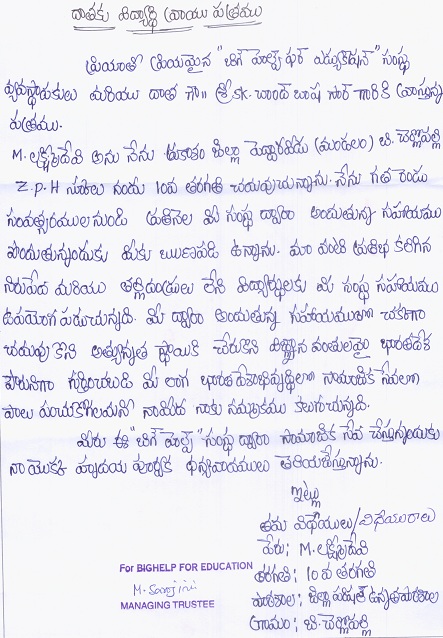 దాతకు విద్యార్థి వ్రాయు పత్రము
ప్రియాతి ప్రియమైన "బిగ్ హెల్ప్ ఫర్ ఎడ్యుకేషన్" సంస్థ
వ్యవస్థాపకులు మరియు దాత గౌ॥ శ్రీ.sk. చాంద్ బాష సార్ గారికి వ్రాస్తున్న
పత్రము.
M. లక్ష్మిదేవి అను నేను ప్రకాశం జిల్లా పెద్దారవీడు (మండలం) బి. చెర్లోపల్లి
Z.P.H స్కూలు నందు 10వ తరగతి చదువుచున్నాను. నేను గత రెండు
సంవత్సరములనుండి ప్రతినెల మీ సంస్థ ద్వారా అందుతున్న సహాయము
పొందుతున్నందుకు మీకు ఋణపడి ఉన్నాను. మా వంటి ప్రతిభ కలిగిన
నిరుపేద మరియు తల్లిదండ్రులు లేని విద్యార్థులకు మీ సంస్థ సహాయము
ఉపయోగ పడుచున్నది. మీ ద్వారా అందుతున్న సహాయముతో చక్కగా
చదువు కొని అత్యున్నత స్థాయికి చేరుకొని విజ్ఞాన వంతులమై భారతదేశ
పౌరునిగా గుర్తించబడి మీ లాగ భారత దేశాభివృద్ధిలో సామాజిక సేవలో
పాలు పంచుకోగలమని నామీద నాకు నమ్మకము కలుగుచున్నది.
మీరు ఈ "బిగ్ హెల్ప్" సంస్థ ద్వారా సామాజిక సేవ చేస్తున్నందుకు
నా యొక్క హృదయ పూర్వక ధన్యవాదములు తెలియజేస్తున్నాను.
ఇట్లు
తమ విధేయులు/విధేయురాలు
పేరు: M. లక్ష్మిదేవి
తరగతి: 10 వ తరగతి
పాఠశాల: జిల్లా పరిషత్ ఉన్నతపాఠశాల
గ్రామం: బి. చెర్లోపల్లి
For BIGHELP FOR EDUCATION
M. Sarojini
MANAGING TRUSTEE